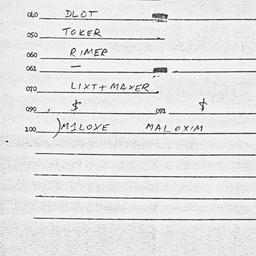 040 DLOT
050 TOKER
060 RIMER
061 —
070 LIXT + MAXER
090 $ 091 $
100 )MILOXE MALOXIM